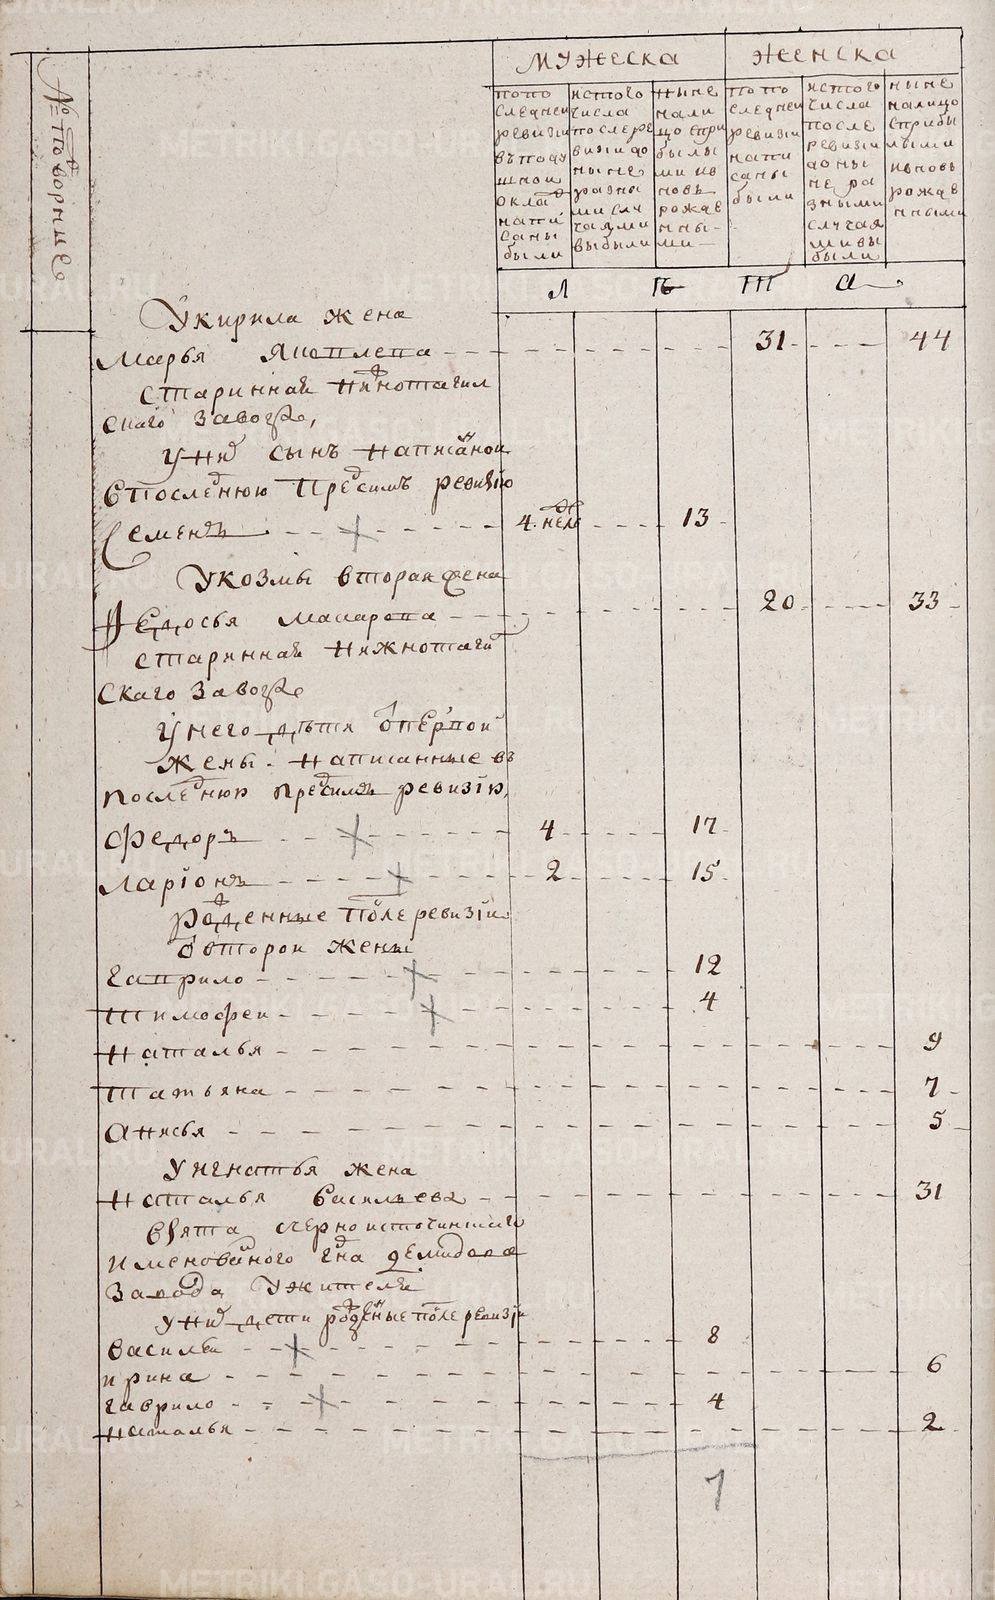 № дворные
мужеска
женска
попо
следнеи
ревизи
в поду
шнои
оклад
напи
саны
были
ис того
числа
после ре
визи до
ныне
разны
ми слу
чаями
выбыли
ныне
нали
цо при
былы
ми и в
новь
рожде
нны
ми
по по
следнеи
ревизи
напи
саны
были
ис того
числа
после
ревизи
до ны
не ра
зными
случая
ми вы
были
ныне
налицо
с прибы
лыми
и вновь
рожде
нными
л ѣ т а
У кирила жена
марья яковлева 31 44
стариннаѧ нижнотагил
скаго завода,
у ней сынъ написаннои
в последнюю пред симъ ревизїю
Семенъ 4. неде 13
У козмы вторая жена
Федосья макарова 20 33
стариннаѧ нижнотаги
скаго завода
у него дѣти от первой
жены. написанные въ
последнюю пред симъ ревизїю,
Федоръ 4 17
Ларїонъ 2 15
рожденные после ревизїи
от второи жены
Гаврило 12
Тимофеи 4
Наталья 9
Татьяна 7
Анисья 5
У игнатья жена
Наталья Васильева 31
взята с черноисточинскаго
именованного гдна демидова
завода у жителя
у ней дети рожденные после ревизїи
Василеи 8
ирина 6
Гаврило 4
Наталья 2
7
METRIKI.GASO-URAL.RU